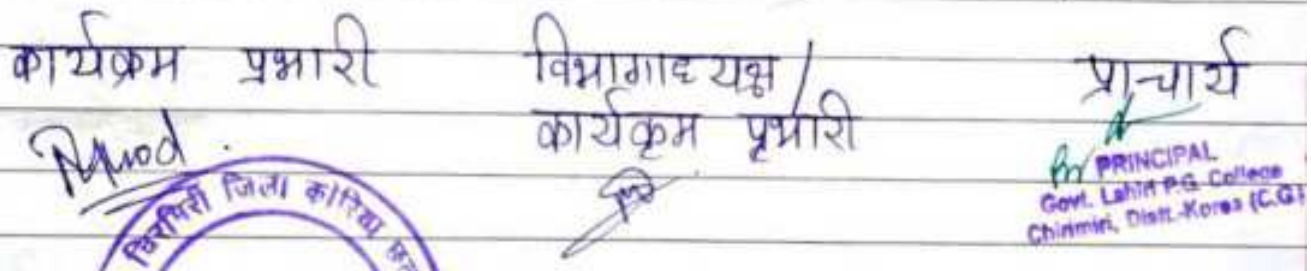 कार्यक्रम प्रभारी विभागाध्यक्ष / प्राचार्य
कार्यक्रम प्रभारी
PRINCIPAL
Govt. Lahiri P.G. College
Chirimiri, Distt.-Korea (C.G.)
चिरमिरी जिला कोरिया